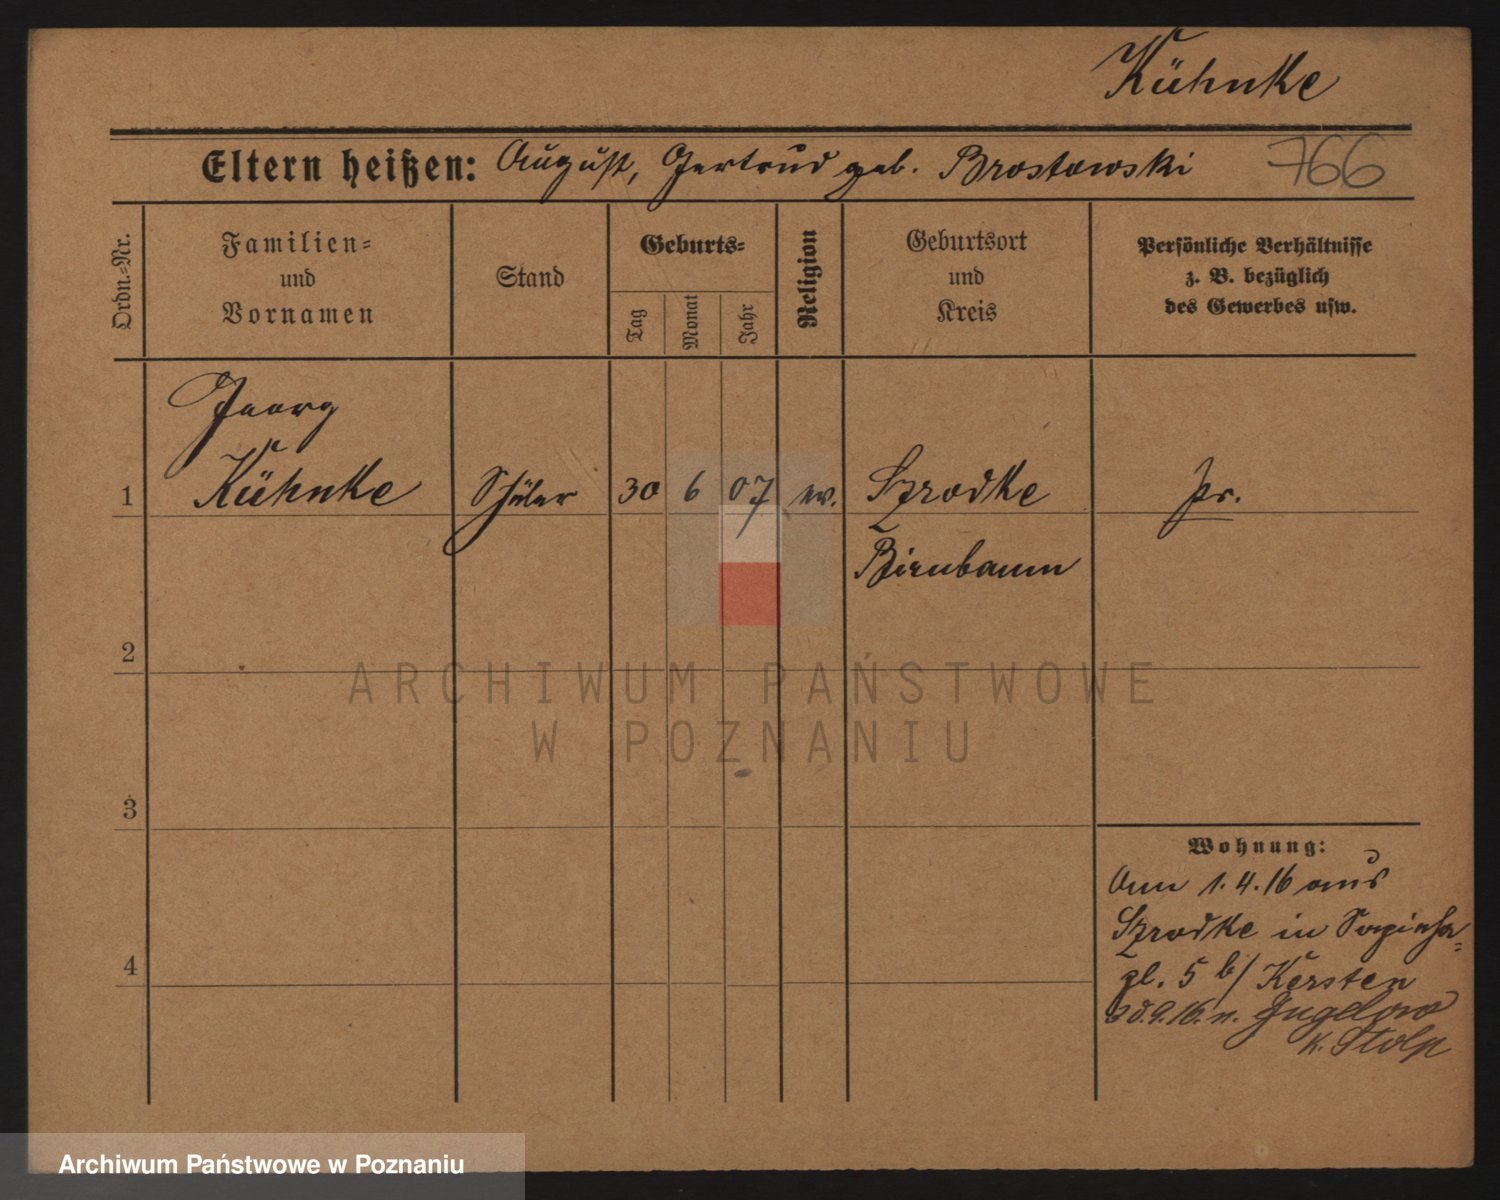 Kühnke
Eltern heißen: August, Gertrud geb. Brostowski 766
Ordn.=Nr.
Familien=
und
Vornamen
Stand
Geburts=
Tag
Monat
Jahr
Religion
Geburtsort
und
Kreis
Persönliche Verhältnisse
z. B. bezüglich
des Gewerbes usw.
Georg
1 Kühnke Schüler 30 6 07 ev. Szrodke pr.
Birnbaum
2
ARCHIWUM PAŃSTWOWE
W POZNANIU
3
Wohnung:
1.4.16 aus
Szrodke in Sapieha=
pl. 5 b/ Kersten
9.16. n.
K. Stolp
4
Archiwum Państwowe w Poznaniu